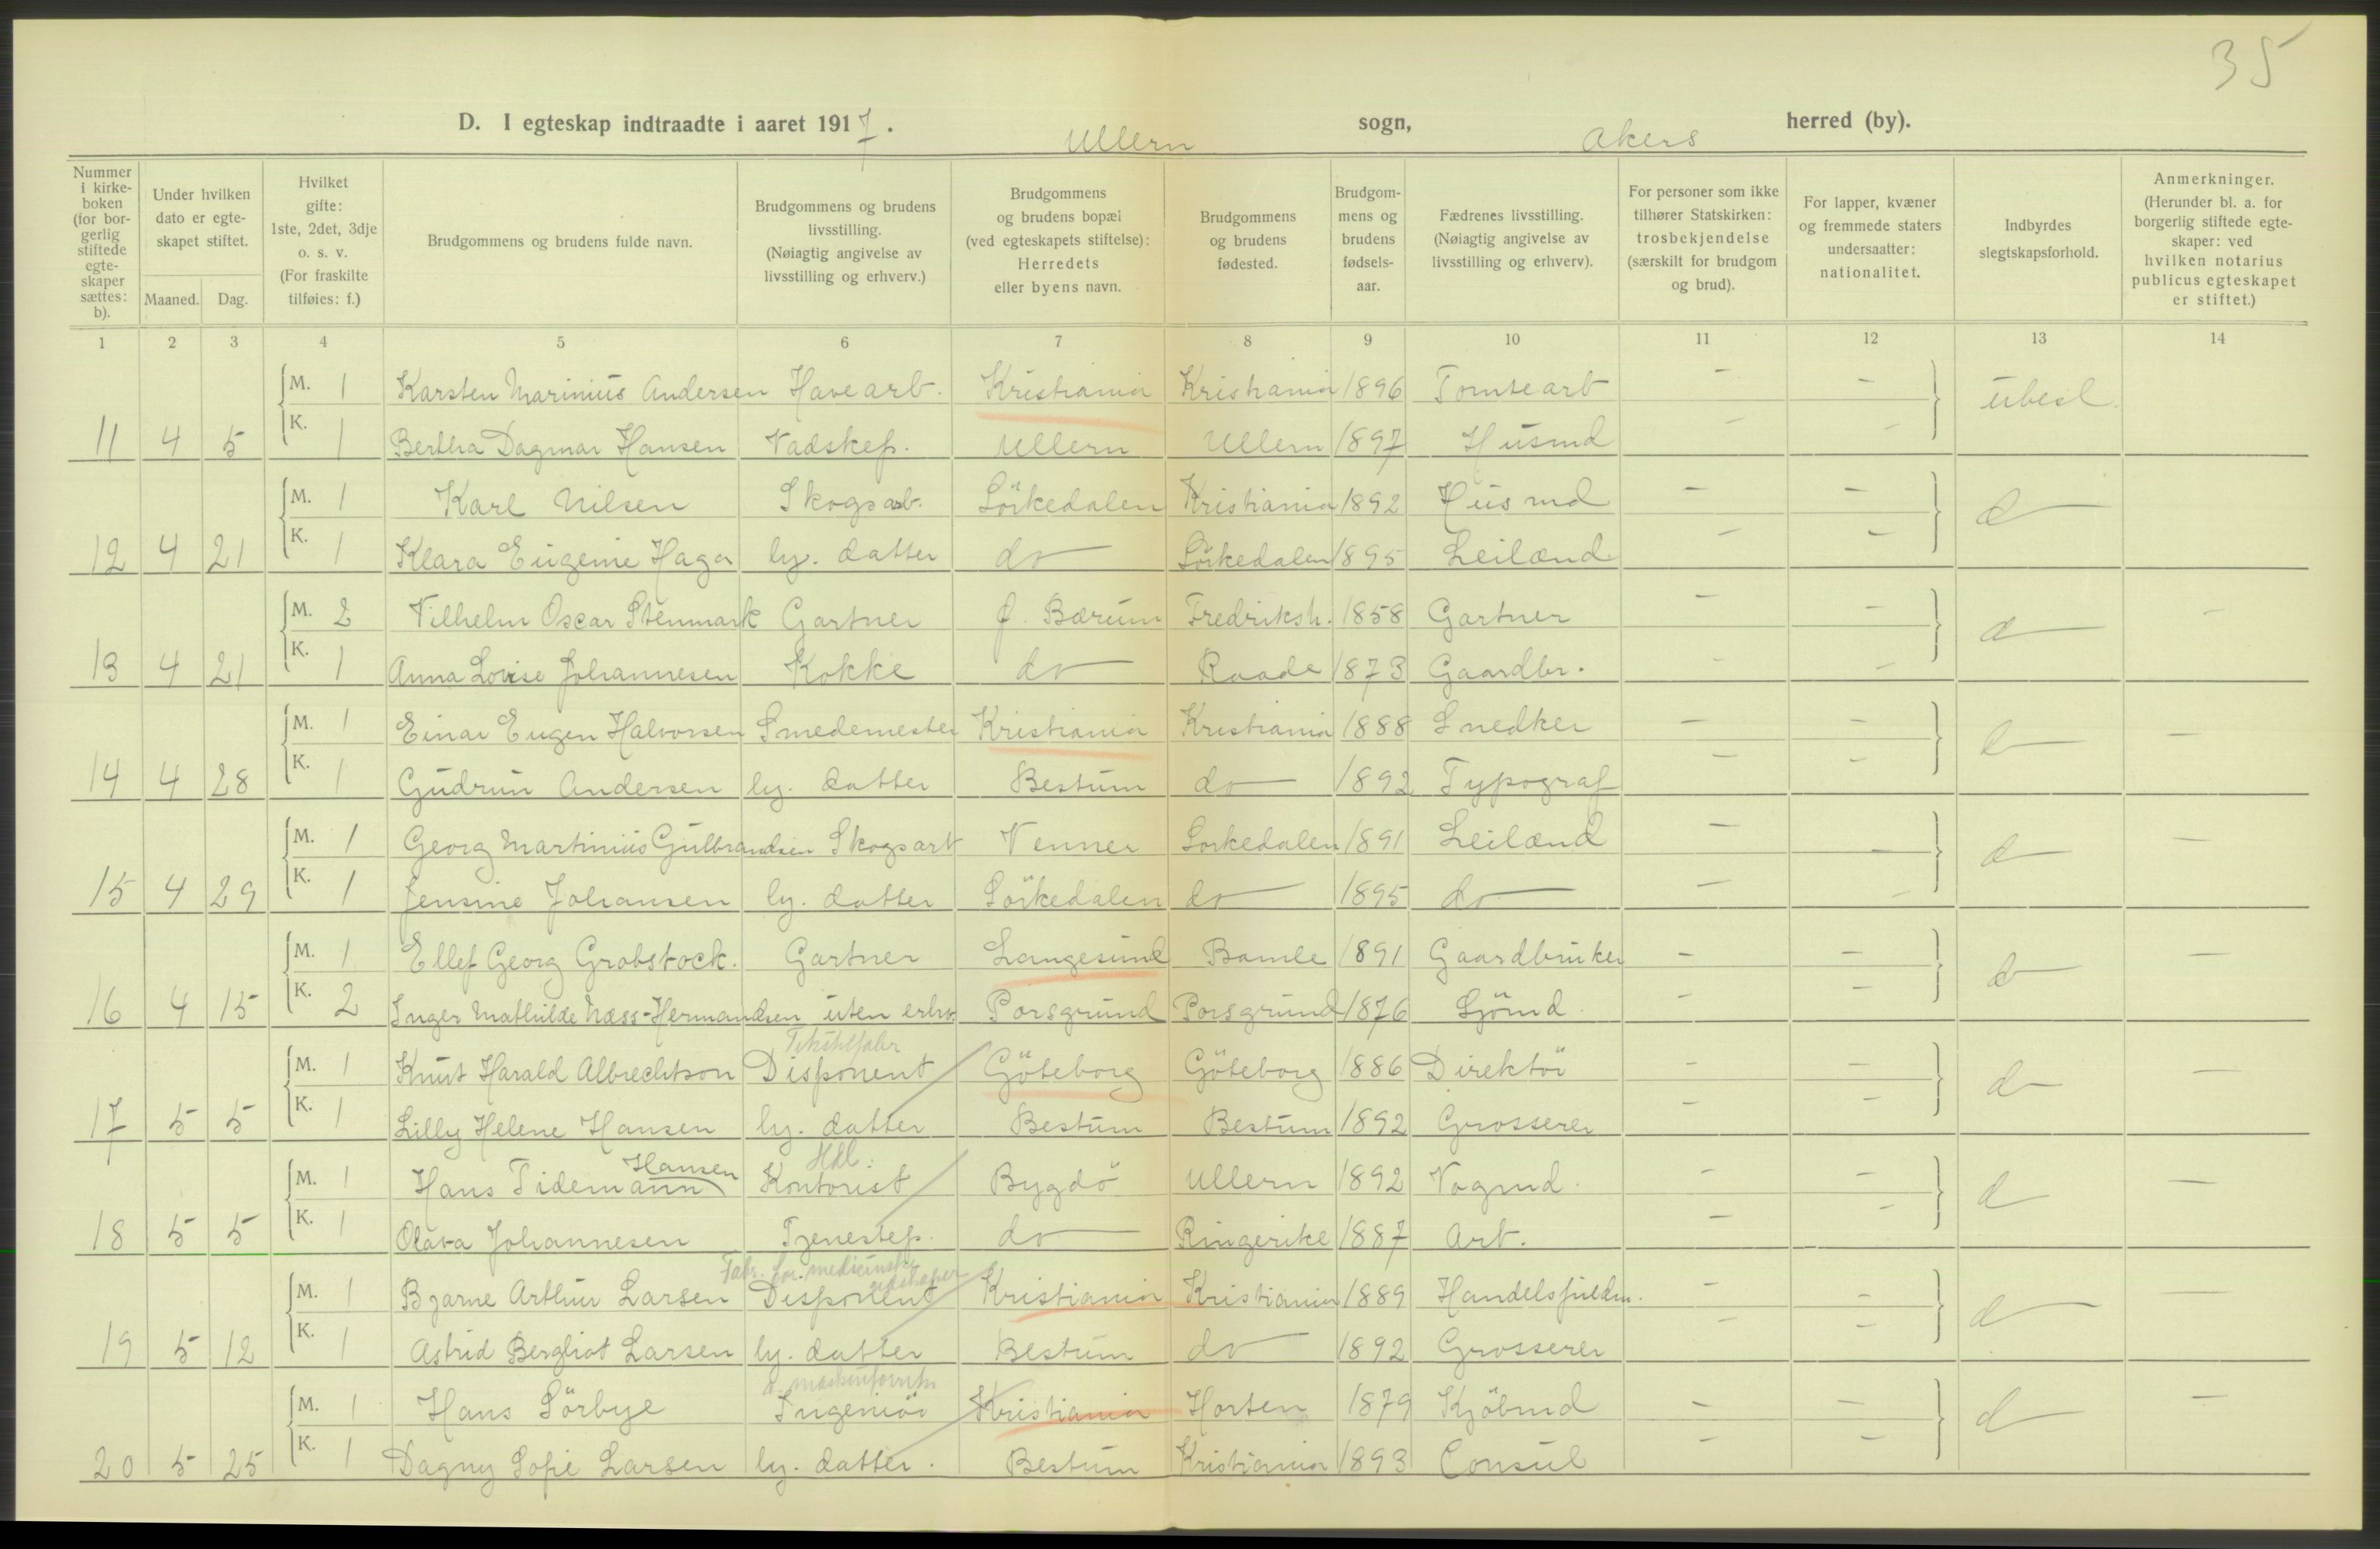 35
D. I egteskap indtraadte i aaret 1917. Ullern sogn, Akers herred (by).
Nummer i kirkeboken (for borgerlig stiftede egteskaper sættes: b).
Under hvilken dato er egteskapet stiftet.
Maaned. Dag.
Hvilket gifte: 1ste, 2det, 3dje o. s. v. (For fraskilte tilføies: f.)
Brudgommens og brudens fulde navn.
Brudgommens og brudens livsstilling. (Nøiagtig angivelse av livsstilling og erhverv.)
Brudgommens og brudens bopæl (ved egteskapets stiftelse): Herredets eller byens navn.
Brudgommens og brudens fødested.
Brudgommens og brudens fødselsaar.
Fædrenes livsstilling. (Nøiagtig angivelse av livsstilling og erhverv).
For personer som ikke tilhører Statskirken: trosbekjendelse (særskilt for brudgom og brud).
For lapper, kvæner og fremmede staters undersaatter: nationalitet.
Indbyrdes slegtskapsforhold.
Anmerkninger. (Herunder bl. a. for borgerlig stiftede egteskaper: ved hvilken notarius publicus egteskapet er stiftet.)
1 2 3 4 5 6 7 8 9 10 11 12 13 14
M. 1 Karsten Marinius Andersen Havearb. Kristiania Kristiania 1896 Tomtearb - - ubesl.
11 4 5 K. 1 Bertha Dagmar Hansen Vadskep. Ullern Ullern 1897 Husmd - -
M. 1 Karl Nilsen Skogsarb. Sörkedalen Kristiania 1892 Husmd - - d
12 4 21 K. 1 Klara Eugenie Haga hj. datter do Sörkedalen 1895 Leilænd - -
M. 2 Vilhelm Oscar Stenmark Gartner Ø. Bærum Fredriksh. 1858 Gartner - - d -
13 4 21 K. 1 Anna Lovise Johannesen Kokke do Raade 1873 Gaardbr. - -
M. 1 Einar Eugen Halvorsen Smedemester Kristiania Kristiania 1888 Snedker - - d -
14 4 28 K. 1 Gudrun Andersen hj. datter Bestum do 1892 Typograf - -
M. 1 Georg Martinius Gulbrandsen Skogsarb Venner Sorkedalen 1891 Leilænd - - d -
15 4 29 K. 1 Jensine Johansen hj. datter Sörkedalen do 1895 do - -
M. 1 Ellef Georg Grobstock. Gartner Langesund Bamle 1891 Gaardbruker - - d -
16 4 15 K. 2 Inger Mathilde Næss-Hermandsen uten erhv. Porsgrund Porsgrund 1876 Sjömd. - -
Tekstilfabr
M. 1 Knut Harald Albrechtson Disponent Göteborg Göteborg 1886 Direktör - - d -
17 5 5 K. 1 Lilly Helene Hansen hj. datter Bestum Bestum 1892 Grosserer - -
Hansen Hdl.
M. 1 Hans Tidemann Kontorist Bygdö Ullern 1892 Vognmd. - - d -
18 5 5 K. 1 Olava Johannesen Tjenestep. do Ringerike 1887 Arb. - -
Fabr. for medicinske redskaper
M. 1 Bjarne Arthur Larsen Disponent Kristiania Kristiania 1889 Handelsfuldm. - - d -
19 5 12 K. 1 Astrid Bergliot Larsen hj. datter Bestum do 1892 Grosserer - -
maskinforretn
M. 1 Hans Sörbye Ingeniör Kristiania Horten 1879 Kjöbmd - - d -
20 5 25 K. 1 Dagny Sofie Larsen hj. datter. Bestum Kristiania 1893 Consul - -